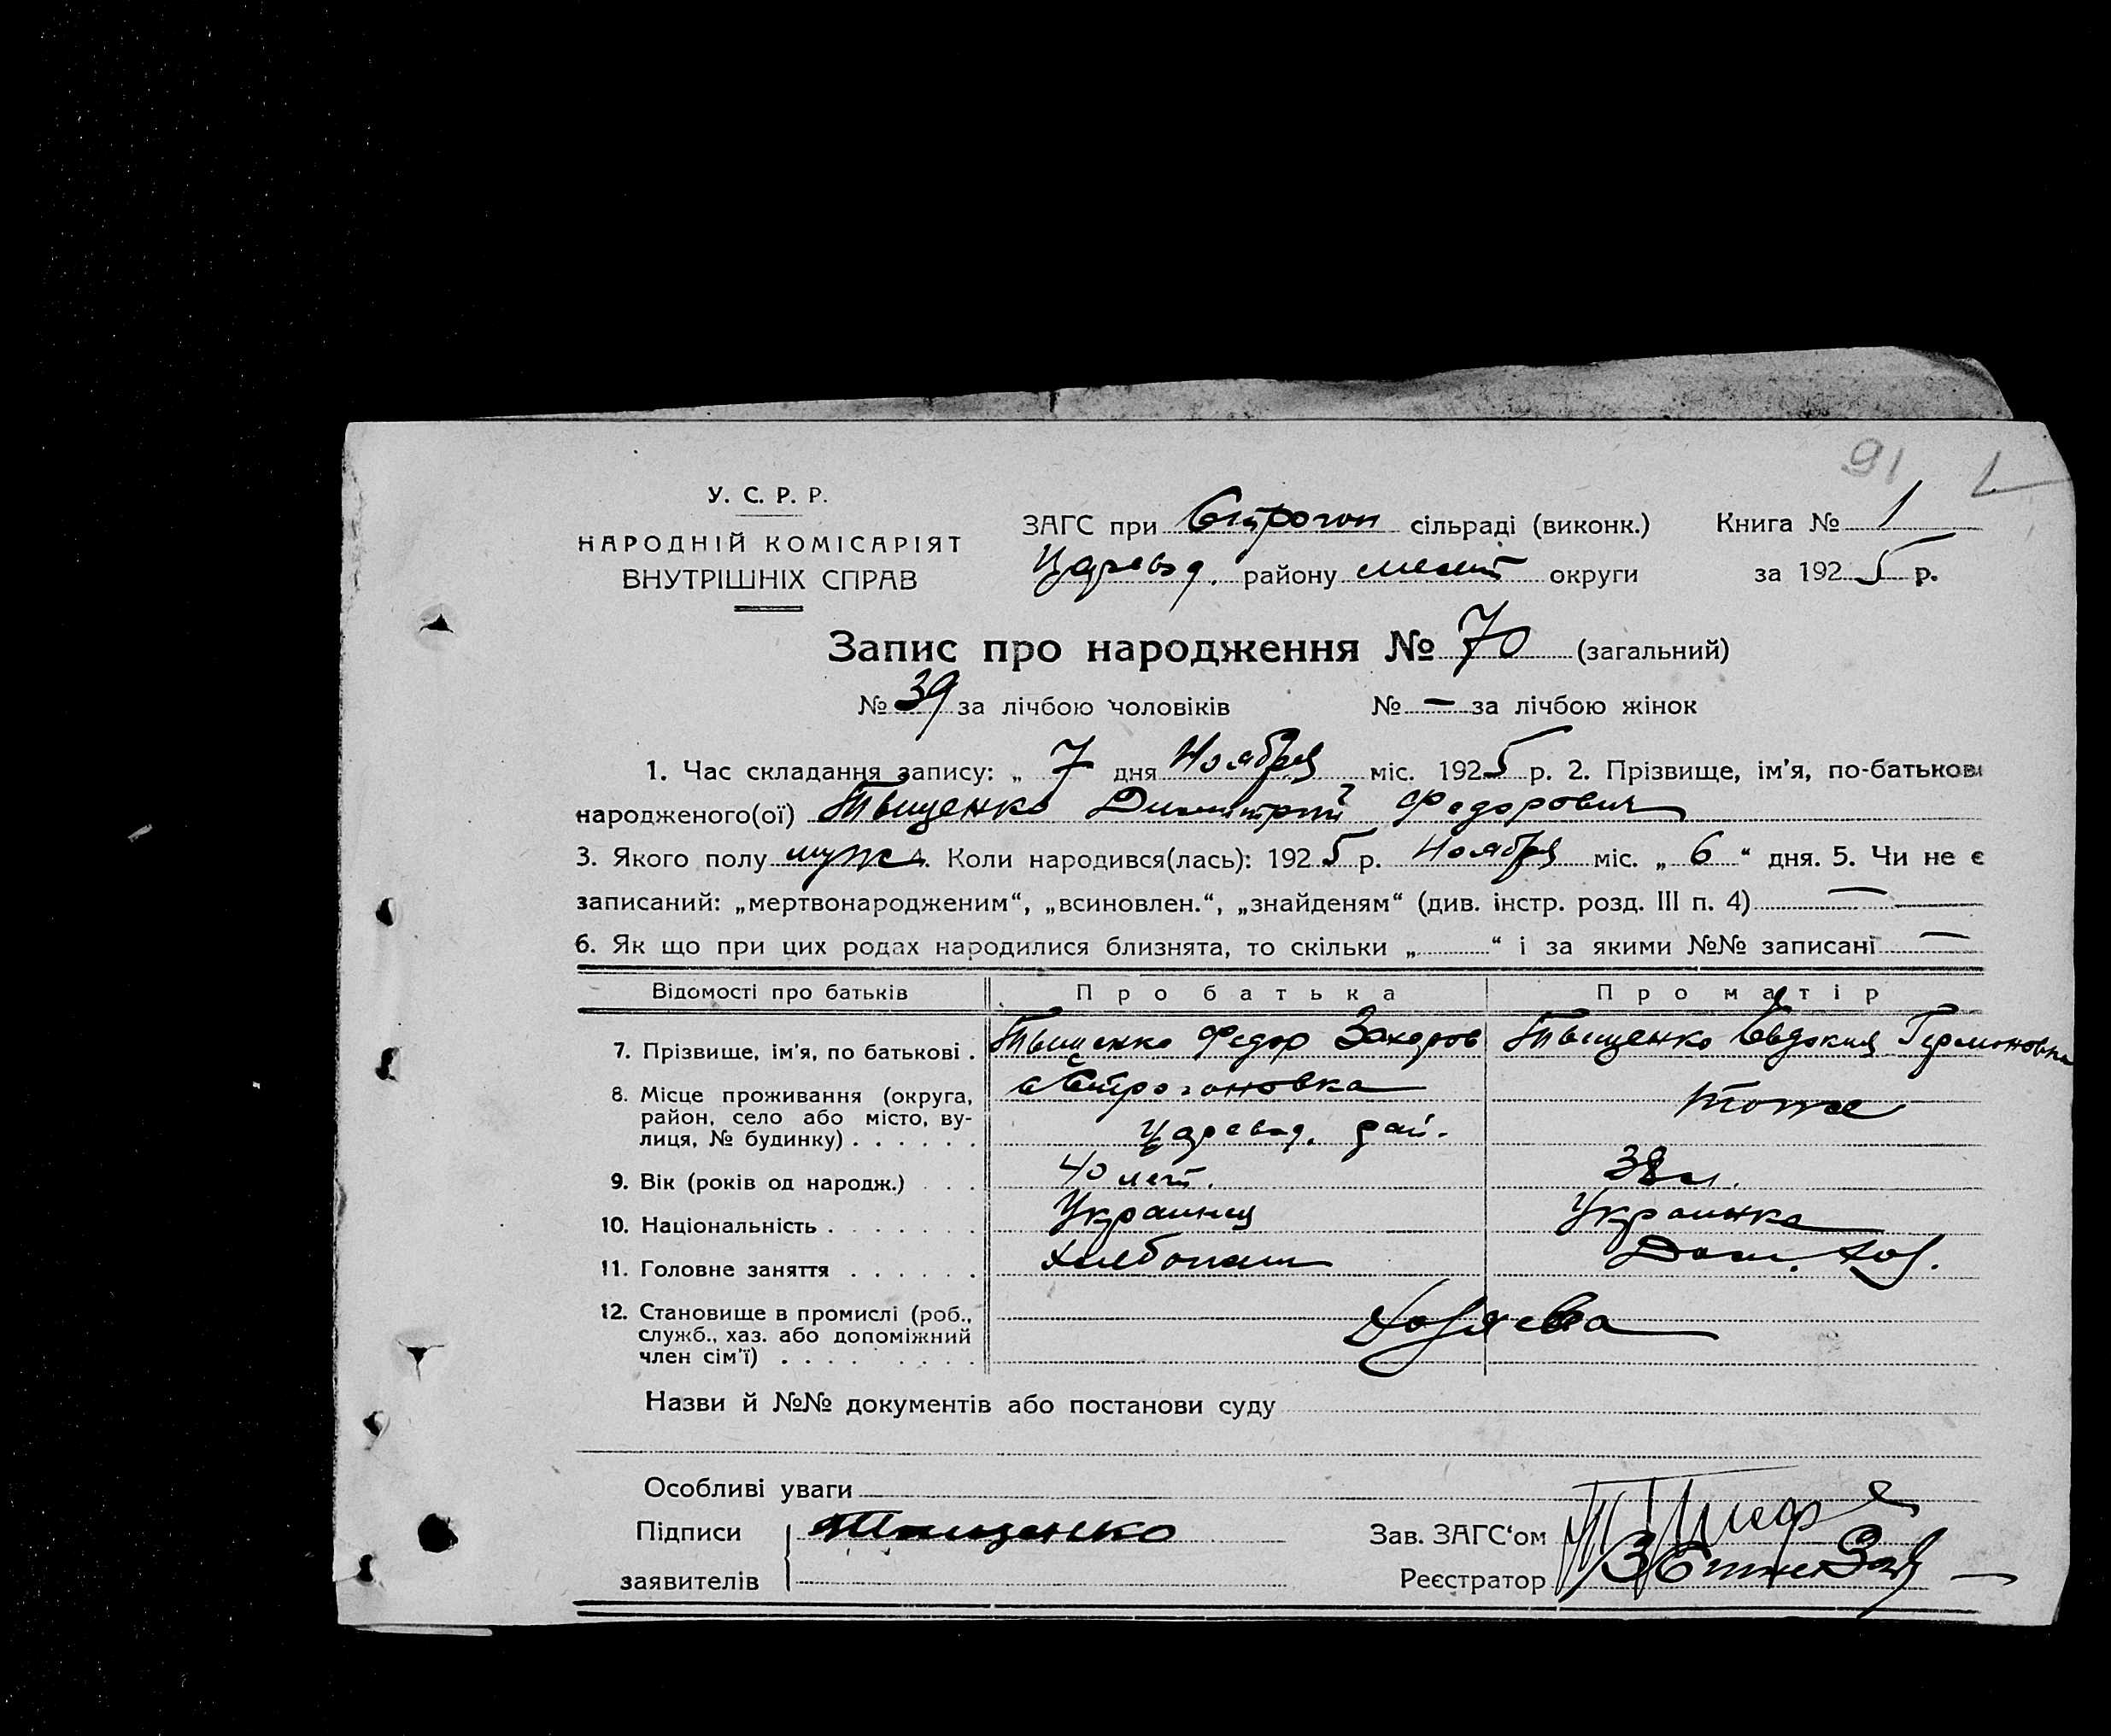 91
У. С. Р. Р.
НАРОДНІЙ КОМІСАРІЯТ
ВНУТРІШНІХ СПРАВ
ЗАГС при Строгон сільраді (виконк.) Книга № 1
Царевод. району мелит округи за 1925 р.
Запис про народження № 70 (загальний)
№ 39 за лічбою чоловіків № — за лічбою жінок
1. Час складання запису: „ 7 дня Ноября міс. 1925 р. 2. Прізвище, ім'я, по-батькові
народженого(ої) Тыщенко Димитрий Федорович
3. Якого полу муж 4. Коли народився(лась): 1925 р. Ноября міс. „ 6 “ дня. 5. Чи не є
записаний: „мертвонародженим“, „всиновлен.“, „знайденям“ (див. інстр. розд. III п. 4) —
6. Як що при цих родах народилися близнята, то скільки „ “ і за якими №№ записані —
Відомості про батьків Про батька Про матір
7. Прізвище, ім'я, по батькові . Тыщенко Федор Захаров Тыщенко Евдокия Гермоновна
8. Місце проживання (округа, с Строгоновка тоже
район, село або місто, ву-
лиця, № будинку) . . . . . . Царевод. рай.
9. Вік (років од народж.) . . . 40 лет. 38 л.
10. Національність . . . . . . Украинец Украинка
11. Головне заняття . . . . . . хлебопаш Дом. хоз.
12. Становище в промислі (роб., хозяева
служб., хаз. або допоміжний
член сім'ї) . . . . . . . . .
Назви й №№ документів або постанови суду
Особливі уваги
Підписи Тищенко Зав. ЗАГС‘ом
заявителів Реєстратор